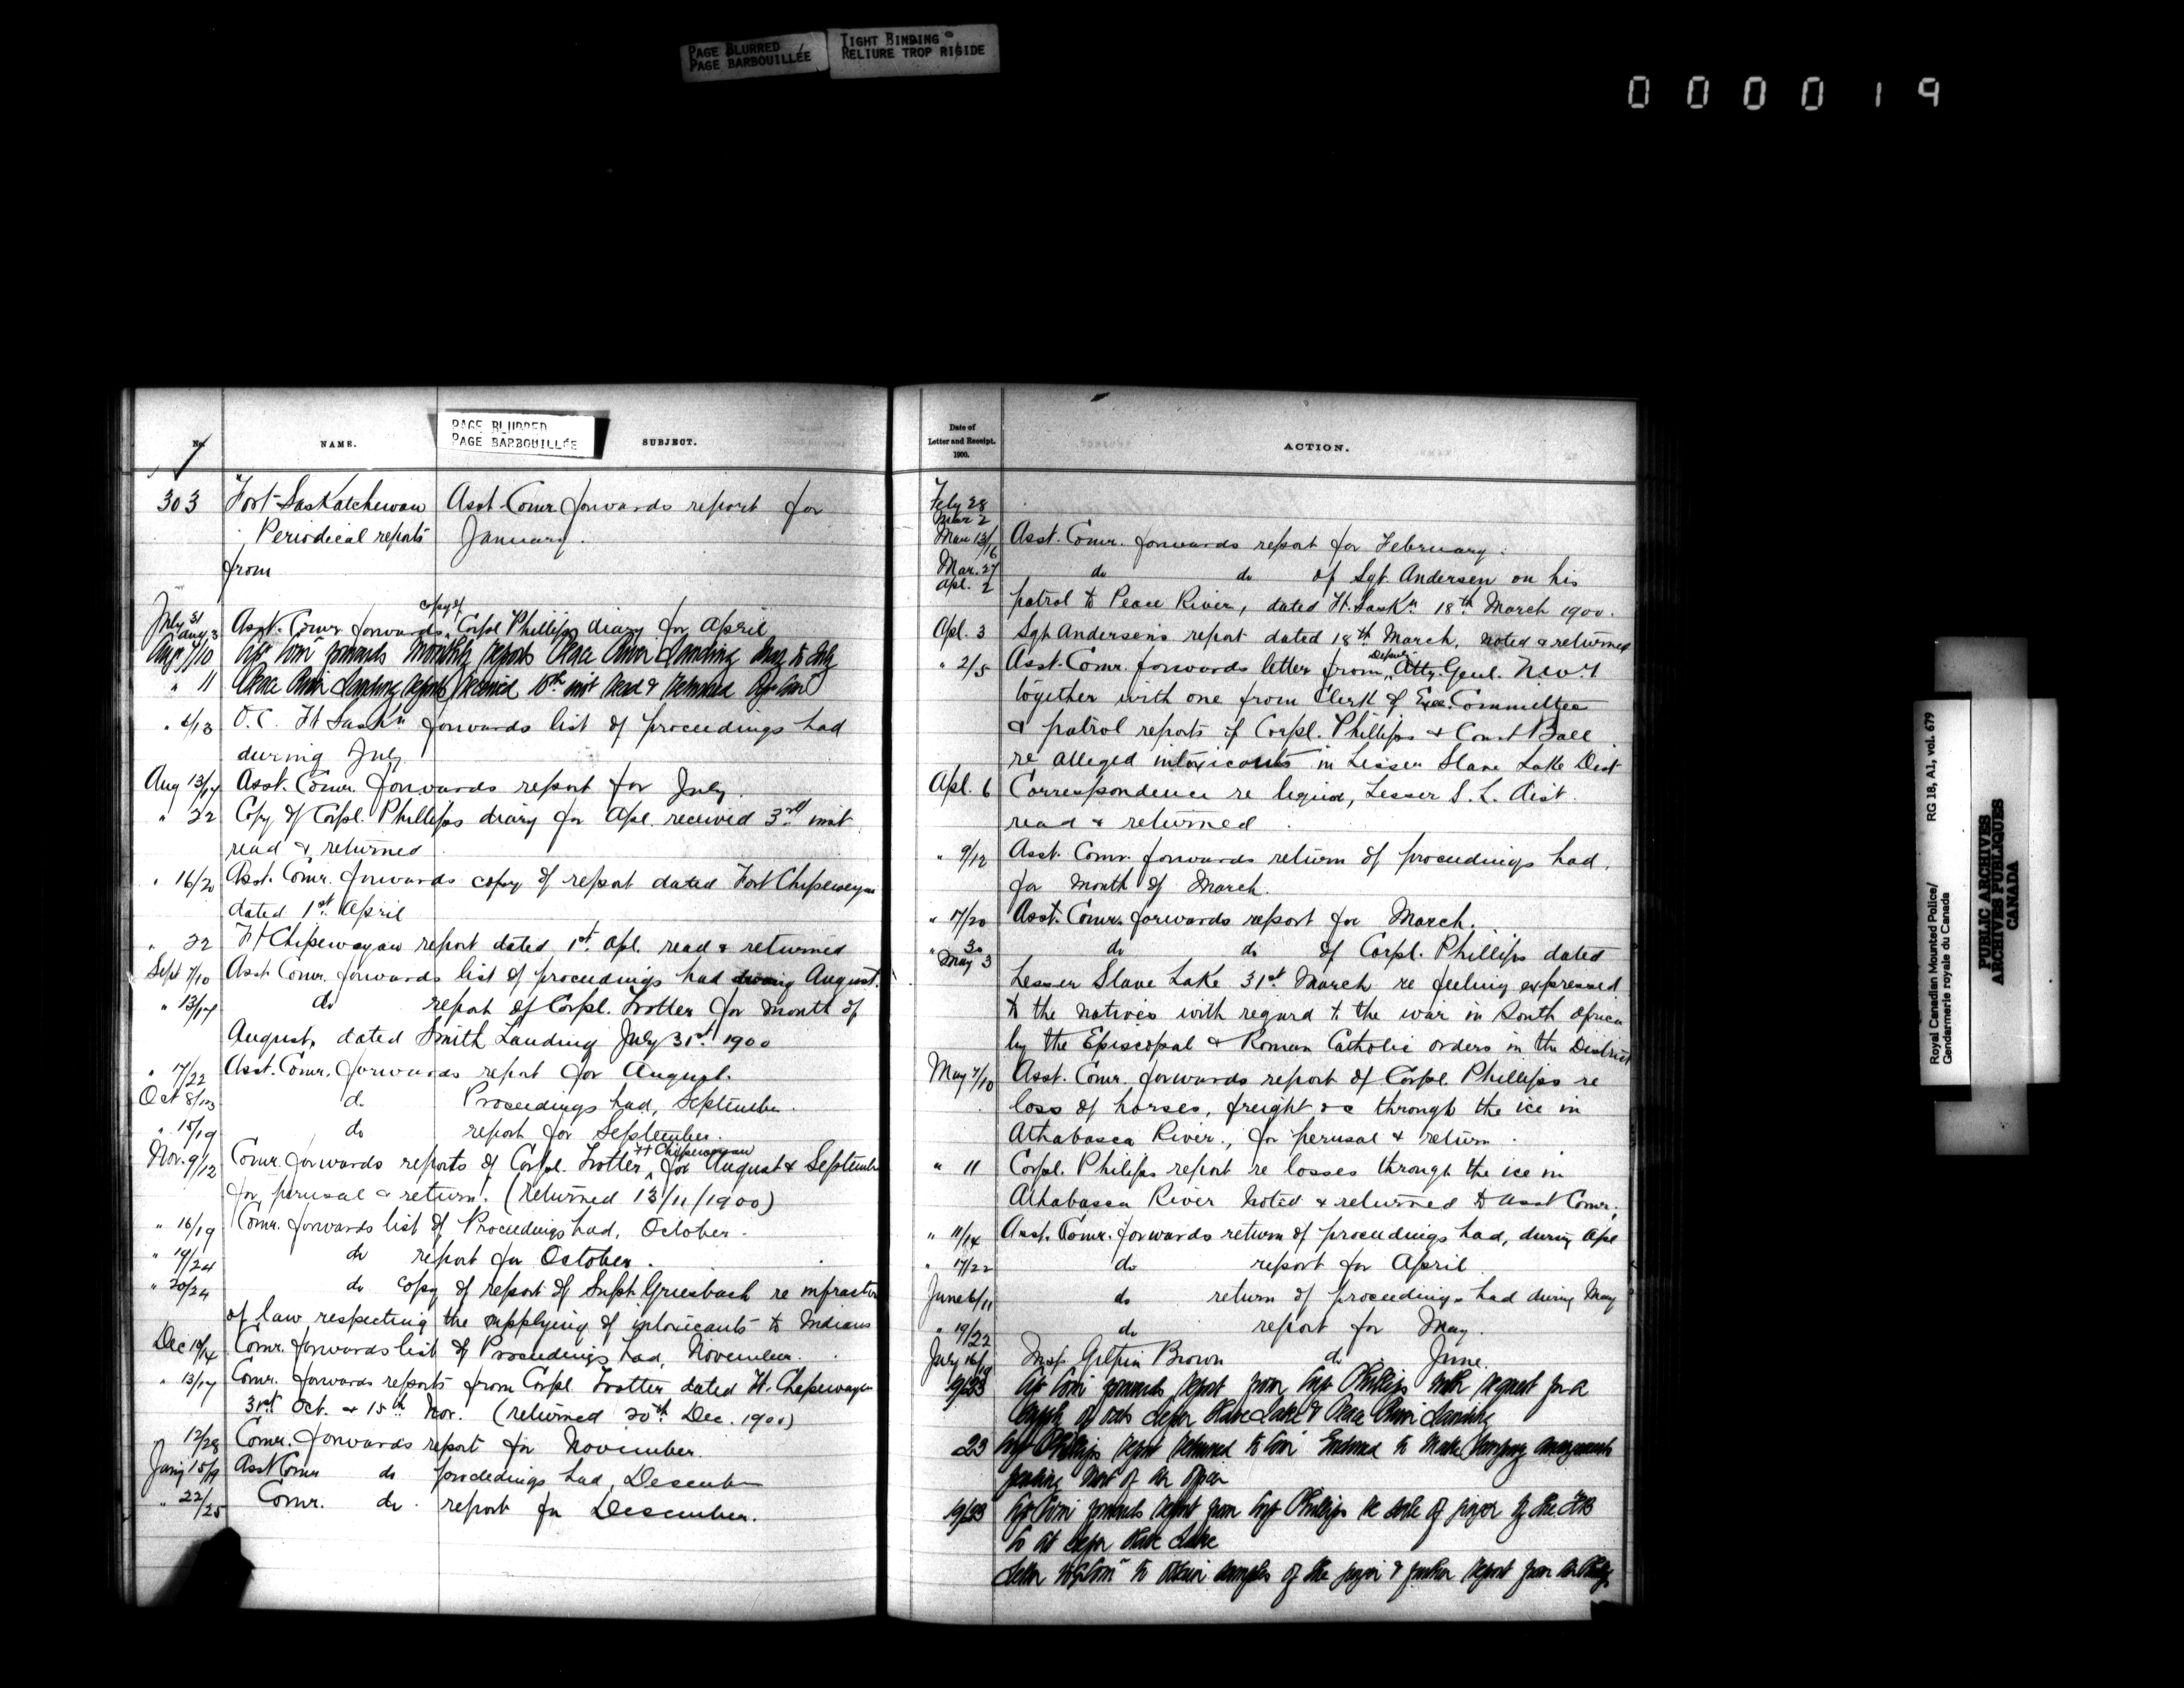 PAGE BLURRED
PAGE BARBOUILLÉE
TIGHT BINDING
RELIURE TROP RIGIDE
000019
PAGE BLURRED
PAGE BARBOUILLÉE
No.
NAME.
SUBJECT.
303 Fort Saskatchewan Asst Comr. forwards report for
Periodical reports January.
from
July 31 Aug 3 Asst. Comr forwards copy of Corpl Phillips diary for April
Aug 7/10 forwards Monthly reports Peace River Landing May to July
" 11 Peace River Landing reports received 10th inst read & returned
" 6/13 O.C. Ft Saskn forwards list of proceedings had
during July
Aug 13/17 Asst. Comr. forwards report for July.
" 22 Copy of Corpl. Phillips diary for Apl. received 3rd inst
read & returned
" 16/20 Asst. Comr. forwards copy of report dated Fort Chipewayan
dated 1st April
" 22 Ft Chipewayan report dated 1st Apl. read & returned
Sept 7/10 Asst Comr. forwards list of proceedings had during August.
" 13/17 do report of Corpl. Trotter for month of
August, dated Smith Landing July 31st 1900
" 17/22 Asst. Comr. forwards report for August.
Oct 8/13 do Proceedings had, September.
" 15/19 do report for September.
Nov. 9/12 Comr. forwards reports of Corpl. Trotter, Ft Chipewayan for August & September
for perusal & return. (returned 13/11/1900)
" 16/19 Comr. forwards list of Proceedings had, October.
" 19/24 do report for October.
" 20/24 do copy of report of Supt Griesbach re infraction
of law respecting the supplying of intoxicants to Indians
Dec 10/14 Comr. forwards list of Proceedings had, November.
" 13/17 Comr. forwards reports from Corpl Trotter dated Ft. Chepewayan
31st Oct. & 15th Nov. (returned 20th Dec. 1900)
12/28 Comr. forwards report for November.
Jany 15/19 Asst Comr do proceedings had, Descember
" 22/25 Comr. do report for Descember.
Date of
Letter and Receipt.
1900.
ACTION.
Feby 28
Mar 2
Mar 13/16 Asst. Comr. forwards report for February.
Mar. 27 Apl. 2 do do of Sgt. Andersen on his
patrol to Peace River, dated Ft. Saskn 18th March 1900.
Apl. 3 Sgt Andersen's report dated 18th March, noted & returned
" 2/5 Asst. Comr. forwards letter from Deputy Atty. Genl. N.W.T
together with one from Clerk of Exe. Committee
& patrol reports of Corpl. Phillips & Const Ball
re alleged intoxicants in Lesser Slave Lake Dist
Apl. 6 Correspondence re liquor, Lesser S. L. Dist.
read & returned.
" 9/12 Asst. Comr. forwards return of proceedings had,
for month of March.
" 17/20 Asst. Comr. forwards report for March.
" 30 May 3 do do of Corpl. Phillips dated
Lesser Slave Lake 31st March re feeling expressed
to the natives with regard to the war in South Africa
by the Episcopal & Roman Catholic orders in the District
May 7/10 Asst. Comr. forwards report of Corpl. Phillips re
loss of horses, freight &c through the ice in
Athabasca River, for perusal & return.
" 11 Corpl. Philips report re losses through the ice in
Athabasca River noted & returned to Asst Comr.
" 11/14 Asst. Comr. forwards return of proceedings had, during Apl
" 17/22 do report for April
June 6/11 do return of proceedings had during May
" 19/22 do report for May.
July 16/19 Insp Gilpin Brown do June.
19/23 forwards report from Corpl Phillips with request for a
supply of oats Lesser Slave Lake & Peace River Landing
23 Corpl Phillips report returned to Comr to make temporary arrangements
pending
19/23 forwards report from Corpl Phillips re sale of ginger by the H B
Co at Lesser Slave Lake
Letter to to obtain samples of the ginger & further report from
Royal Canadian Mounted Police/
Gendarmerie royale du Canada
RG 18, A1, vol. 679
PUBLIC ARCHIVES
ARCHIVES PUBLIQUES
CANADA